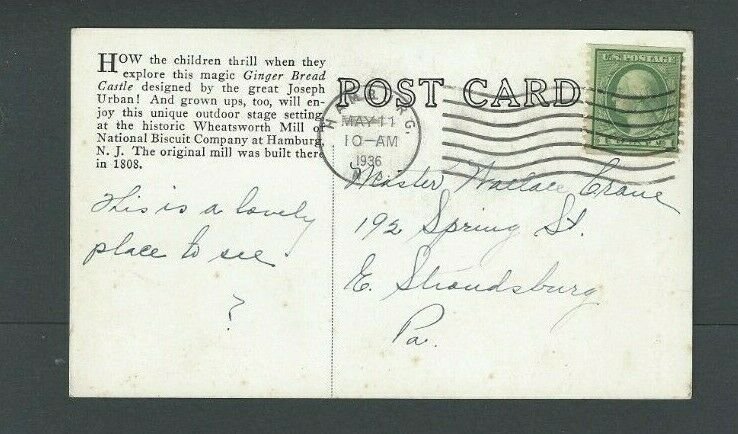 HOW the children thrill when they
explore this magic Ginger Bread
Castle designed by the great Joseph
Urban! And grown ups, too, will en-
joy this unique outdoor stage setting
at the historic Wheatsworth Mill of
National Biscuit Company at Hamburg,
N. J. The original mill was built there
in 1808.
This is a lovely
place to see.
?
POST CARD
HAMBURG.
MAY 11
10-AM
1936
U.S. POSTAGE
1 CENT 1
Master Wallace Crane
192 Spring St.
E. Stroudsburg
Pa.